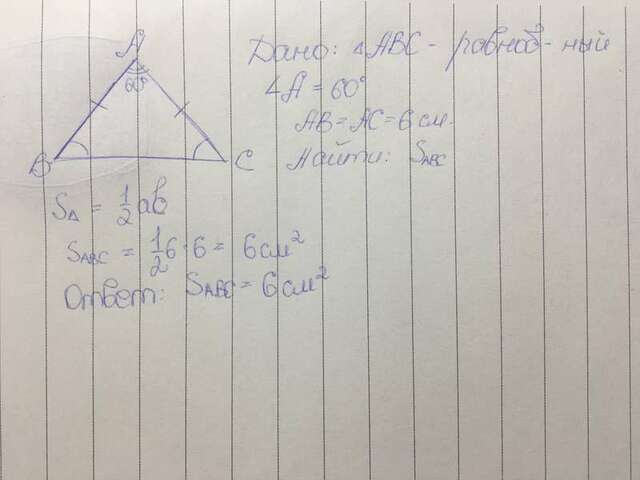 A
60°
B
C
Дано: △ABC - равноб-ный
∠A = 60°
AB = AC = 6 см.
Найти: S ABC
S△ = 1/2 ab
S ABC = 1/2 6 · 6 = 6 см²
Ответ: S ABC = 6 см²